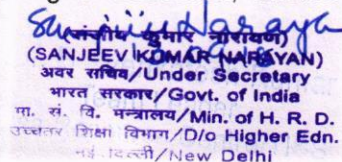 (संजीव कुमार नारायण)
(SANJEEV KOMAR NARAYAN)
अवर सचिव/Under Secretary
भारत सरकार/Govt. of India
मा. सं. वि. मन्त्रालय/Min. of H. R. D.
उच्चतर शिक्षा विभाग/D/o Higher Edn.
नई दिल्ली/New Delhi